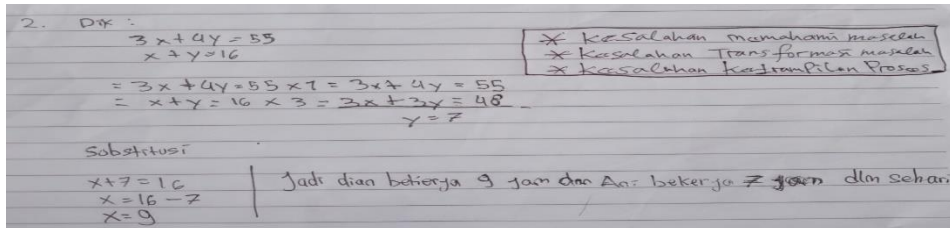 2. Dik :
3x + 4y = 55
x + y = 16
* Kesalahan memahami masalah
* Kesalahan Transformasi masalah
* Kesalahan Ketrampilan Proses
= 3x + 4y = 55 x 1 = 3x + 4y = 55
= x + y = 16 x 3 = 3x + 3y = 48 -
y = 7
Substitusi
x + 7 = 16
x = 16 - 7
x = 9
Jadi dian bekerja 9 jam dan Ani bekerja 7 jam dlm sehari